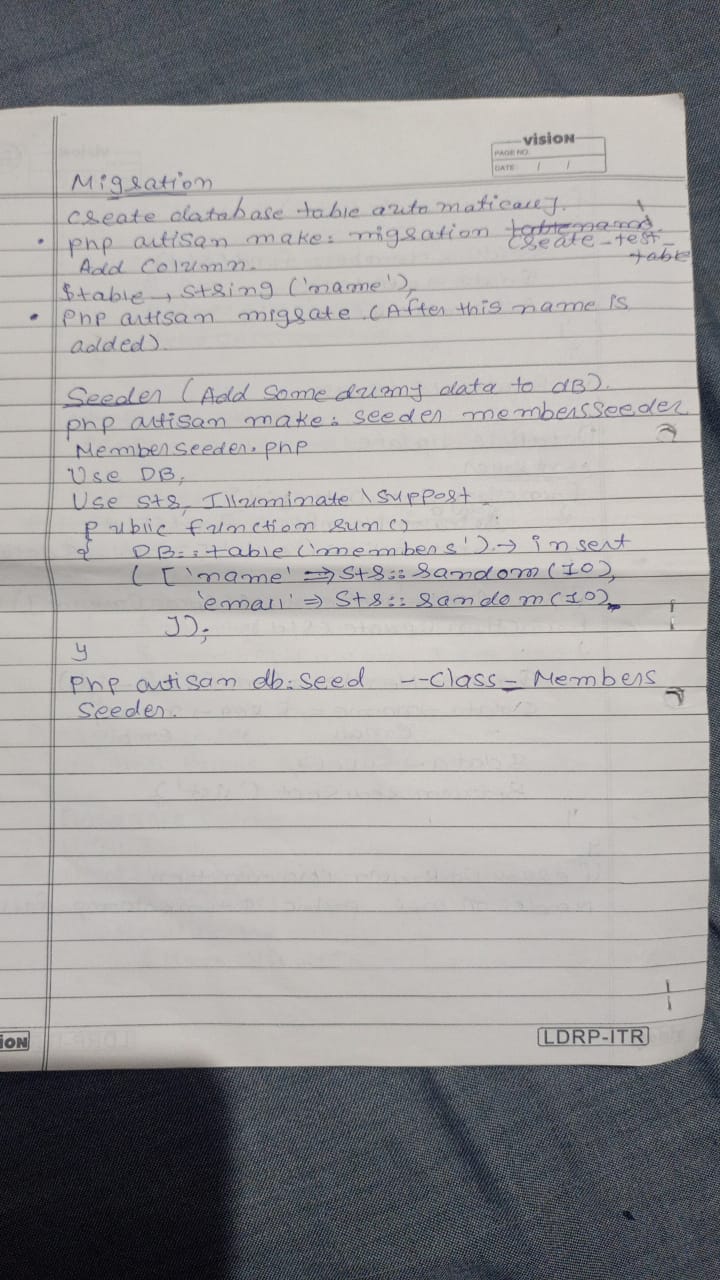 vision
PAGE NO.
DATE / /
Migration
create database table automatically.
• php artisan make: migration create-test-table
Add Column.
$table → string ('name'),
• php artisan migrate. (After this name is
added).
Seeder (Add some dummy data to dB).
php artisan make: seeder membersseeder
Memberseeder.php
Use DB;
Use Str, Illuminate \ Support
public function run()
{ DB::table ('members') → insert
( ['name' => Str:: random (10),
'email' => Str:: random (10),
]);
}
php artisan db:seed --class= Members
Seeder.
ION
LDRP-ITR